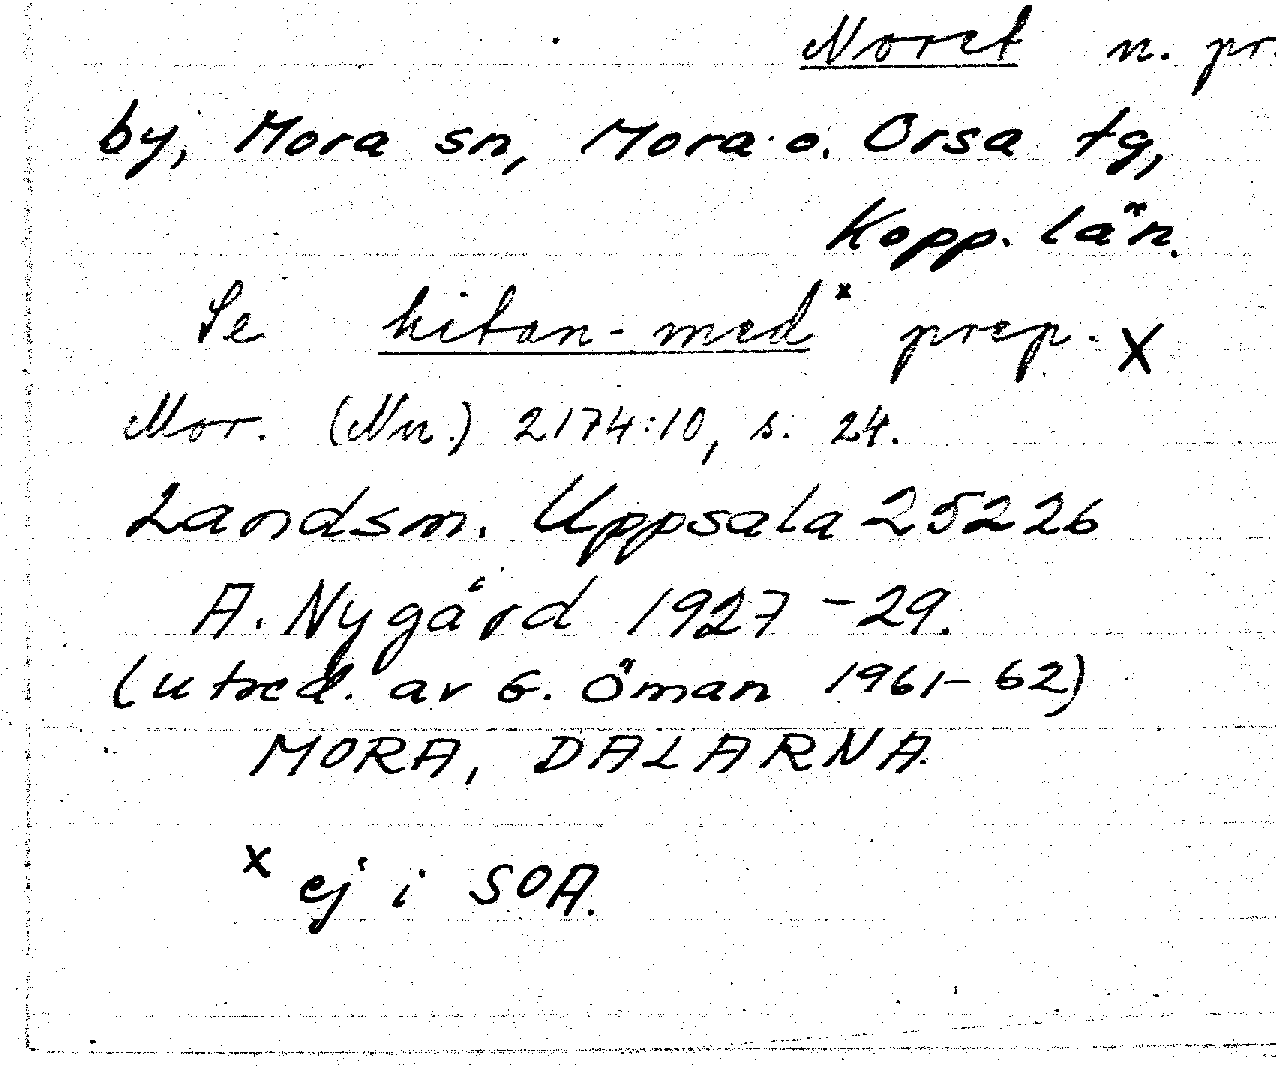 Noret n. pr.
by, Mora sn, Mora o. Orsa tg,
Kopp. län.
Se hitan-med x prep. X
Mor. (Nu.) 2174:10, s. 24.
Landsm. Uppsala 25226
A. Nygård 1927-29.
(utred. av G. Öman 1961-62)
MORA, DALARNA.
x ej i SOA.